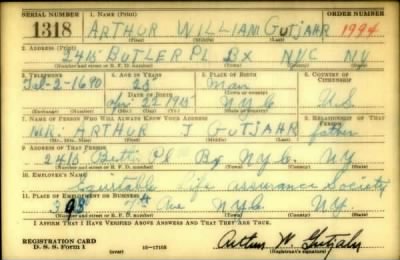 SERIAL NUMBER 1. NAME (Print) ORDER NUMBER
1318 ARTHUR WILLIAM GUTJAHR 1994
2. ADDRESS (Print)
BUTLER PL BX NYC NY
(Number and street or R. F. D. number) (Town) (County) (State)
3. TELEPHONE 4. AGE IN YEARS 5. PLACE OF BIRTH 6. COUNTRY OF CITIZENSHIP
2-1690
DATE OF BIRTH
22 N.Y.C. U.S.
7. NAME OF PERSON WHO WILL ALWAYS KNOW YOUR ADDRESS 8. RELATIONSHIP OF THAT PERSON
MR. ARTHUR J GUTJAHR father
9. ADDRESS OF THAT PERSON
Pl Bx N.Y.C. NY
(Number and street or R. F. D. number) (Town) (County) (State)
10. EMPLOYER'S NAME
Equitable Life Assurance Society
11. PLACE OF EMPLOYMENT OR BUSINESS
393 7th Ave NYC NY.
(Number and street or R. F. D. number) (Town) (County) (State)
I AFFIRM THAT I HAVE VERIFIED ABOVE ANSWERS AND THAT THEY ARE TRUE.
REGISTRATION CARD
D. S. S. Form 1 (over) 16—17105 Arthur W. Gutjahr
(Registrant's signature)